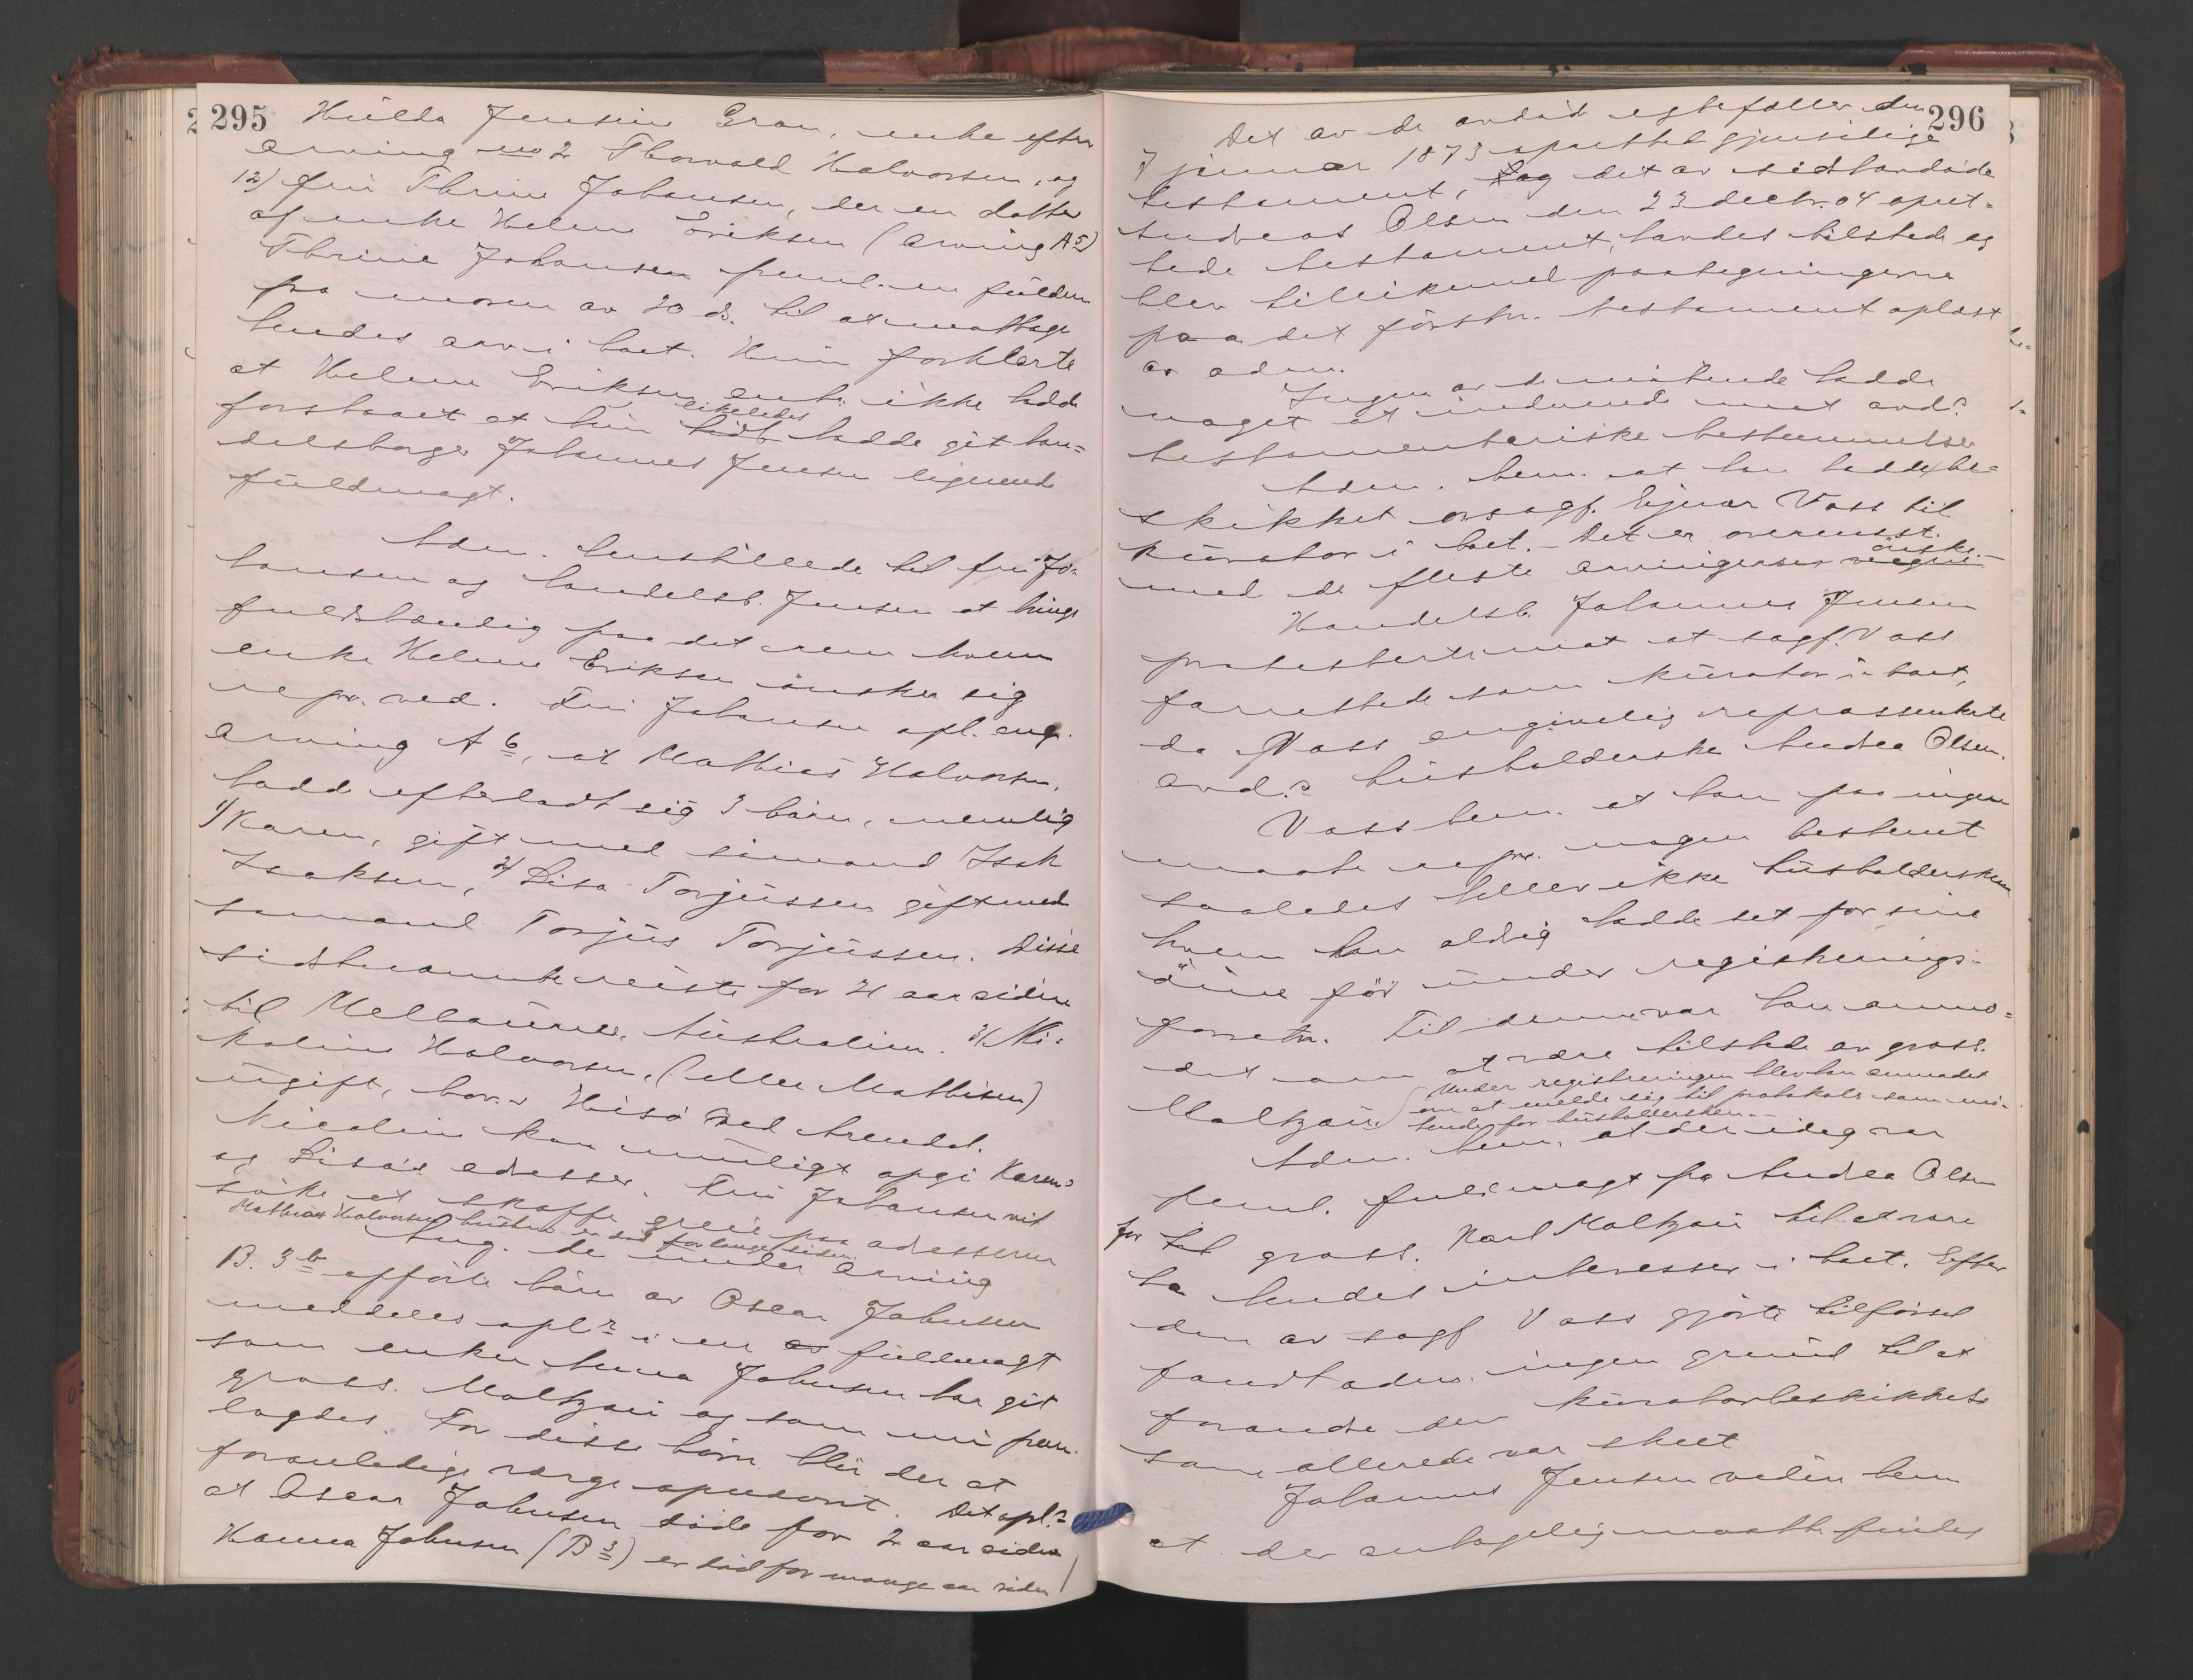 295
Hulda Jensine Gran, enke efter
arving no 2 Thorvald Halvorsen, og
12) fru Thrine Johansen, der en datter
af enke Helene Eriksen (arving A 5)
Thrine Johansen freml. en fuldm
fra moren av 20 ds. til at mottage
hendes arv i boet. Hun forklarte
at Helene Eriksen ikke hadde
forstaaet at hun likeledes hadde git han-
delsborger Johannes Jensen lignende
fuldmagt.
Adm. henstillede til fru Jo-
hansen og handelsb. Jensen at bringe
fuldstændig paa det rene hvem
enke Helene Eriksen ønsker sig
repr. ved. Fru Johansen opl. ang.
arving A 6, at Mathias Halvorsen,
hadde efterladt sig 3 børn, nemlig
1) Karen, gift med sømand Isak
Isaksen, 2) Lisa Torjussen gift med
sømand Torjus Torjussen. Disse
sidstnævnte reiste for 21 aar siden
til Melbourne, Australien. 3) Ni-
koline Halvorsen, (eller Mathisen)
ugift, bor Hisø ved Arendal.
Nicoline kan muligt opgi Karens
og Lisa's adresser. Fru Johansen vil
søke at skaffe greie paa adresserne
Mathias Halvorsens hustru er død for længe siden.
Ang. de under arving
B. 3 b opførte børn av Oscar Johnsen
meddeles opl. i en fuldmagt
som enken Anna Johnsen har git
gross. Maltzau og som nu frem
lagdes. For disse børn blir der at
foranledige værge opnevnt. Det opl.
at Oscar Johnsen døde for 2 aar siden
Hanna Johnsen (B 3) er død for mange aar siden /
296
Det av de avdøde egtefæller den
7 januar 1873 oprettet gjensidige
testament, og det av sidstavdøde
Andreas Olsen den 23 decbr. 04 opret-
tede testament, havdes tilstede og
blev tillikemed paategningerne
paa det førstn. testament oplæst
av adm.
Ingen av de møtende hadde
noget at indvende mot avd.s
testamentariske bestemmelser
Adm. bem. at han hadde be-
skikket o.r.sagf. Ejnar Vass til
kurator i boet. Det er overensst.
med de fleste arvingers ønske.
Handelsb. Johannes Jensen
protesterte mot at sagf. Vass
forrettede som kurator i boet,
da Vass angivelig repræsenterte
avd.s husholderske Andrea Olsen.
Vass bem. at han paa ingen
maate repr. nogen bestemt
saaledes heller ikke husholdersken
hvem han aldrig hadde set for sine
øine før under registrerings-
forretn. Til denne var han anmo-
det om at være tilstede av gross.
Maltzau. Under registreringen blev han anmodet
om at melde sig til protokols som mø-
tende for husholdersken.
Adm. bem. at der idag var
freml. fuldmagt fra Andrea Olsen
for gross. Karl Maltzau til at vare
ta hendes interesser i boet. Efter
den av sagf Vass gjorte tilførsel
fandt adm. ingen grund til at
forandre den kuratorbeskikkelse
som allerede var skeet
Johannes Jensen videre bem
at der antagelig maatte findes